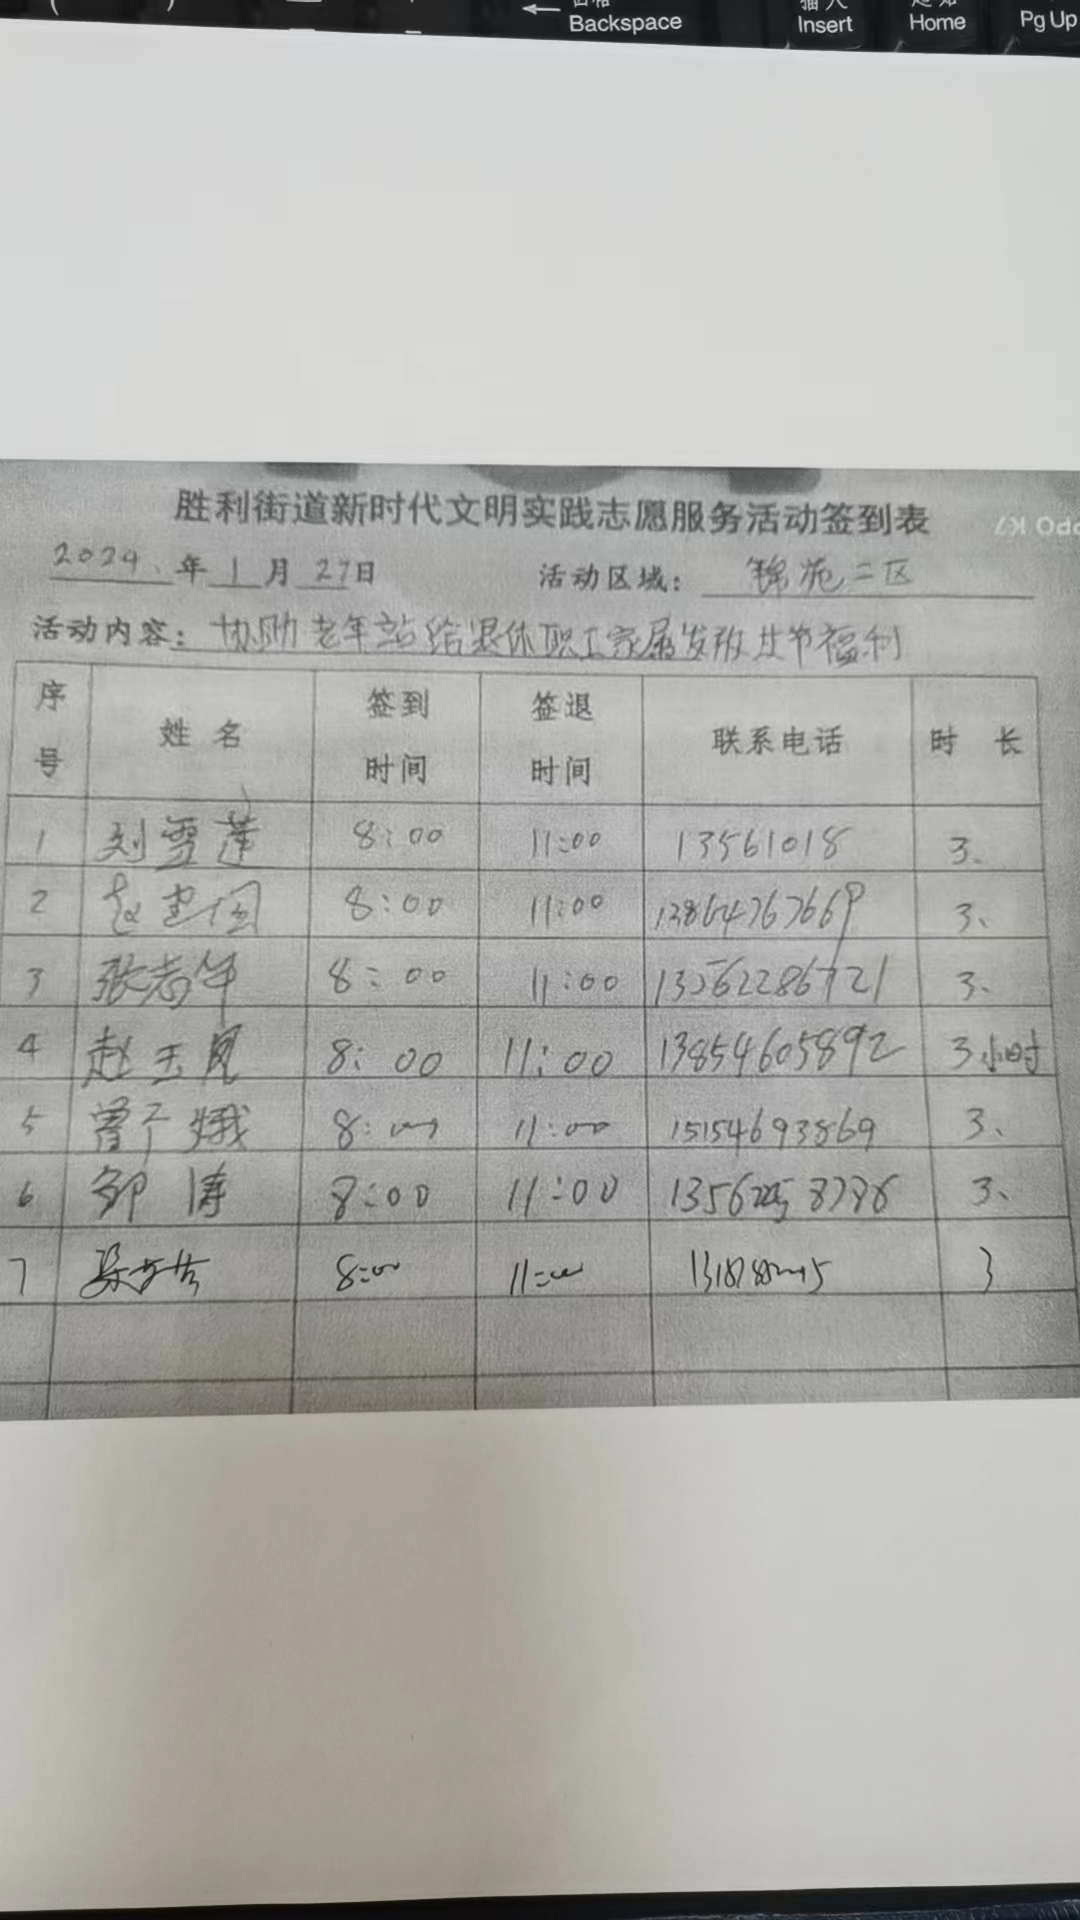 Backspace
插入 Insert
Home
Pg Up
胜利街道新时代文明实践志愿服务活动签到表
2024年1月27日 活动区域：锦苑二区
活动内容：协助老年站给退休职工家属发放过节福利
序号 姓名 签到时间 签退时间 联系电话 时长
1 刘雪莲 8:00 11:00 13561018 3、
2 赵建国 8:00 11:00 13864767669 3、
3 张志华 8:00 11:00 13562286721 3、
4 赵玉凤 8:00 11:00 13854605892 3小时
5 8:00 11:00 15154693869 3、
6 邹涛 8:00 11:00 3、
7 8:00 11:00 3